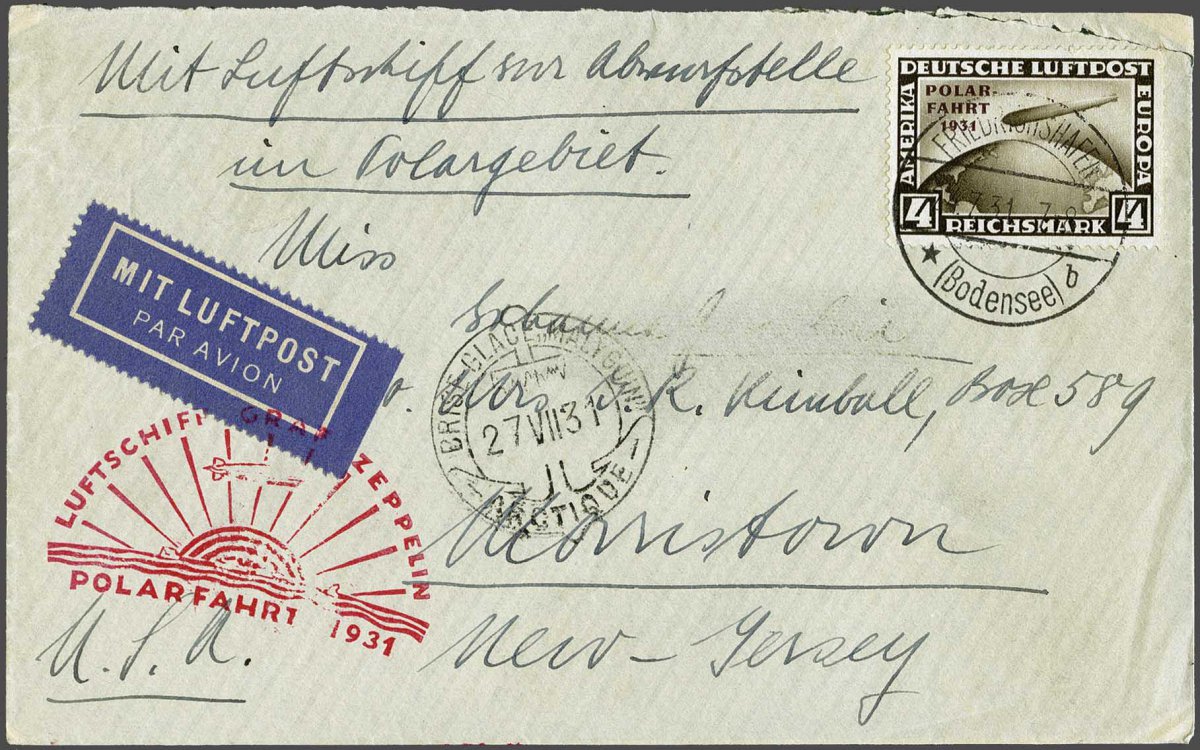 Mit Luftschiff zur Abwurfstelle
im Polargebiet.
DEUTSCHE LUFTPOST
AMERIKA
EUROPA
POLAR-
FAHRT
1931
4 REICHSMARK 4
FRIEDRICHSHAFEN
7.31 7-8
(Bodensee) b
Miss
MIT LUFTPOST
PAR AVION
Mrs K. Kimball, Box 589
BRISE-GLACE „MALYGUIN"
27 VII 31
ARCTIQUE
Morristown
LUFTSCHIFF GRAF ZEPPELIN
POLARFAHRT 1931
U.S.A.
New-Jersey